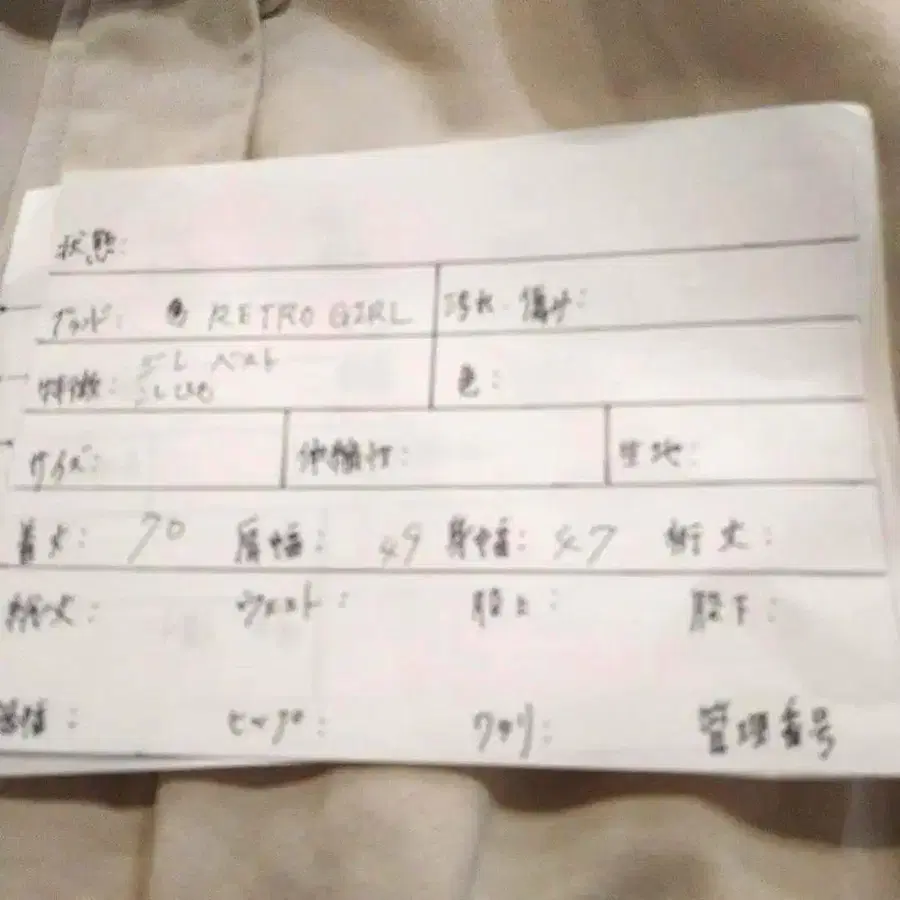 状態:
ブランド: RETRO GIRL 汚れ・傷み:
特徴: ジレ ベスト
色:
サイズ: 伸縮性: 生地:
着丈: 70 肩幅: 49 身幅: 47 裄丈:
総丈: ウエスト: 股上: 股下:
裾幅: ヒップ: ワタリ: 管理番号